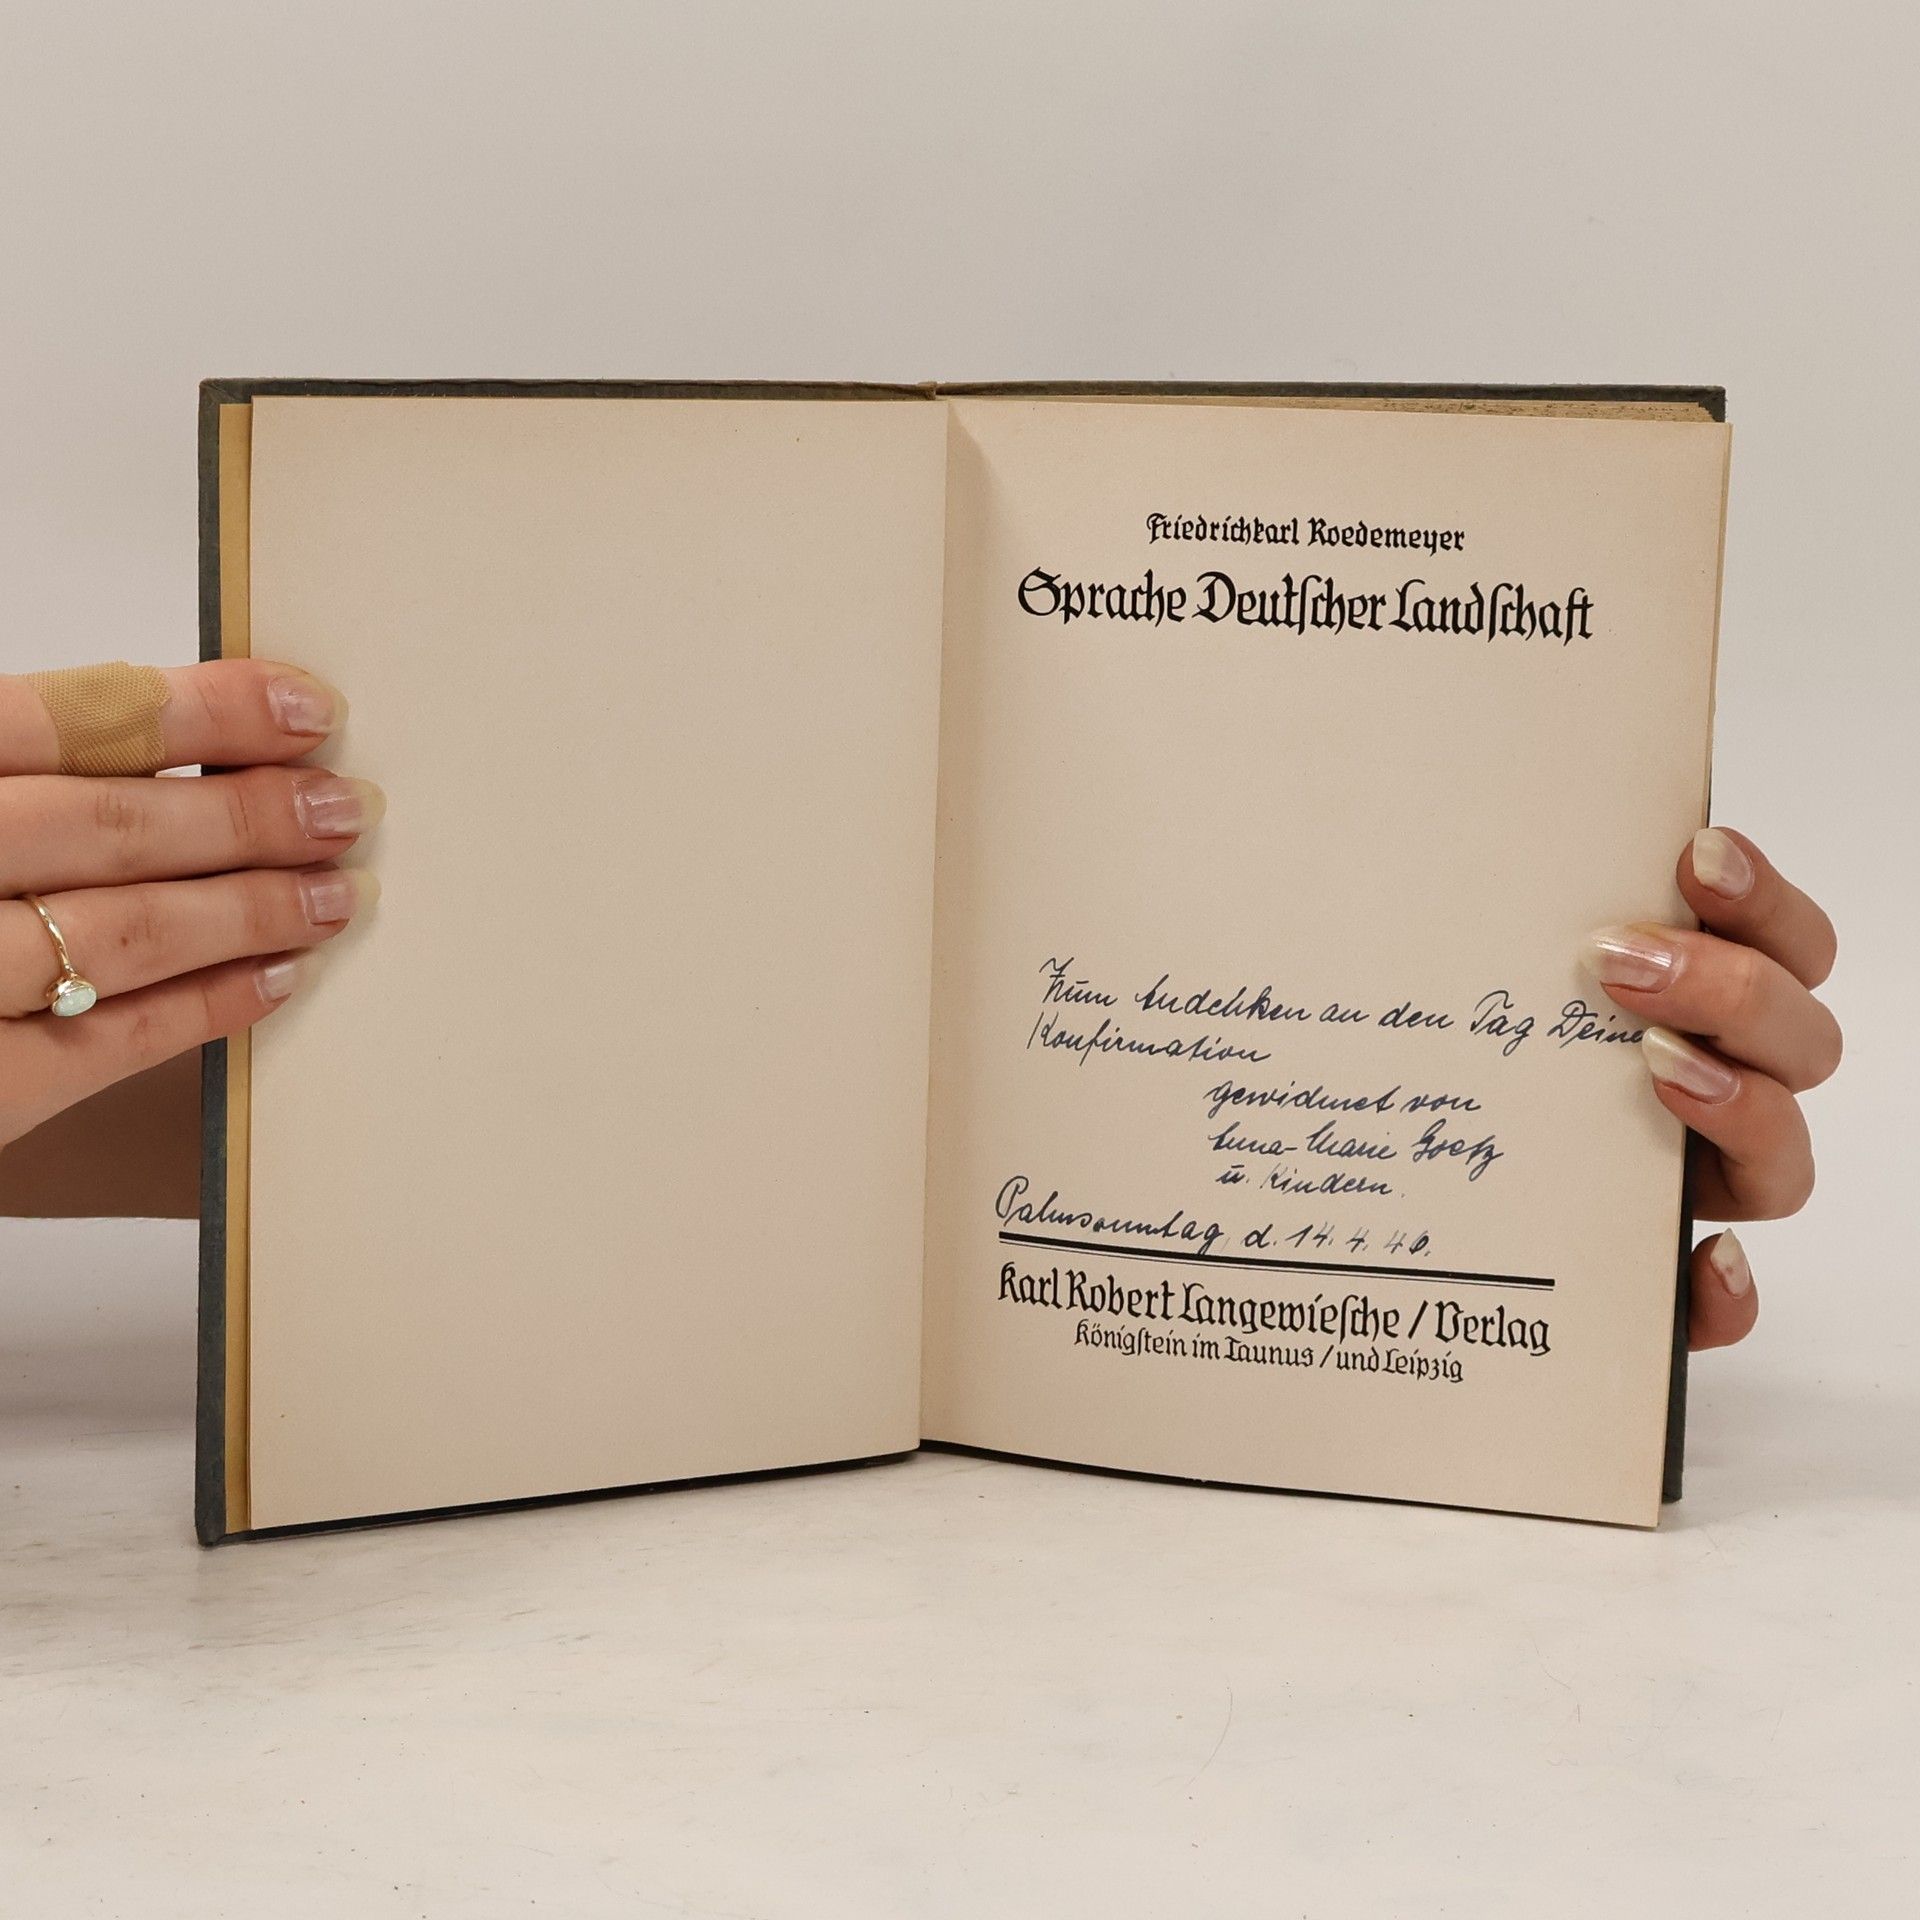 Friedrichkarl Roedemeyer
Sprache Deutscher Landschaft
Zum Andenken an den Tag Deine
Konfirmation
gewidmet von
Anna-Marie Goetz
u. Kindern.
Palmsonntag, d. 14. 4. 46.
Karl Robert Langewiesche / Verlag
Königstein im Taunus / und Leipzig